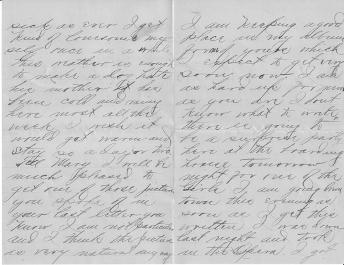 sick as ever I get
kind of lonesome my
self once in a while
this weather is enough
to make a dog hate
his mother It has
been cold and
here most all this
week I wish it
would get warm and
stay so a day or two
Mary I will be
much pleased to
get one of those pictures
you spoke of in
your last letter you
know I am not particular
and I think the picture
is very natural any way
I am keeping a good
place in my album
for of you're which
I expect to get very
soon now I am
as hard up for
as you are I don't
know what to write
there is going to
be a surprise party
here at the boarding
house tomorrow
night for one of the
girls I am going down
town this evening as
soon as I get this
written I was down
last night and took
in the Opera I got